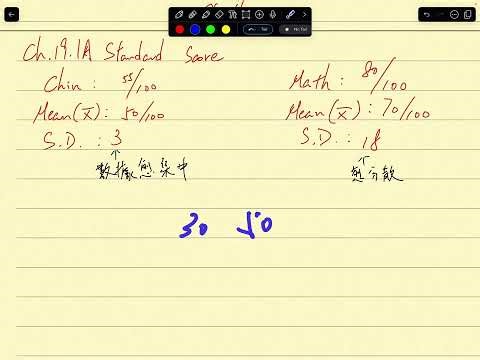 Ch.19.1A Standard Score
Chin : 55/100
Mean(x̄) : 50/100
S.D. : 3
↑
数據愈集中
Math : 80/100
Mean(x̄) : 70/100
S.D. : 18
↑
愈分散
30 50